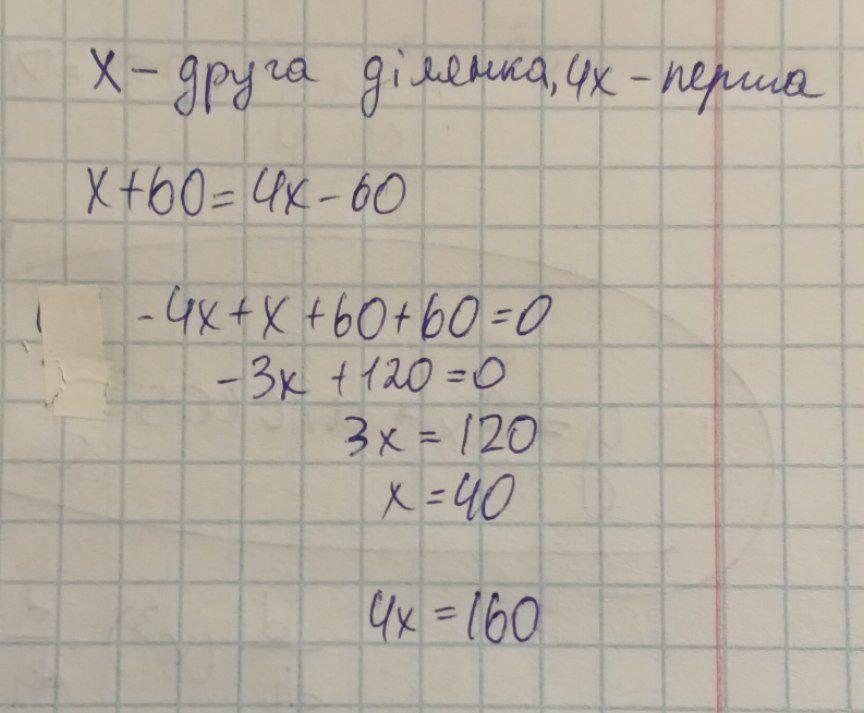 x - друга ділянка, 4x - перша
x + 60 = 4x - 60
-4x + x + 60 + 60 = 0
-3x + 120 = 0
3x = 120
x = 40
4x = 160